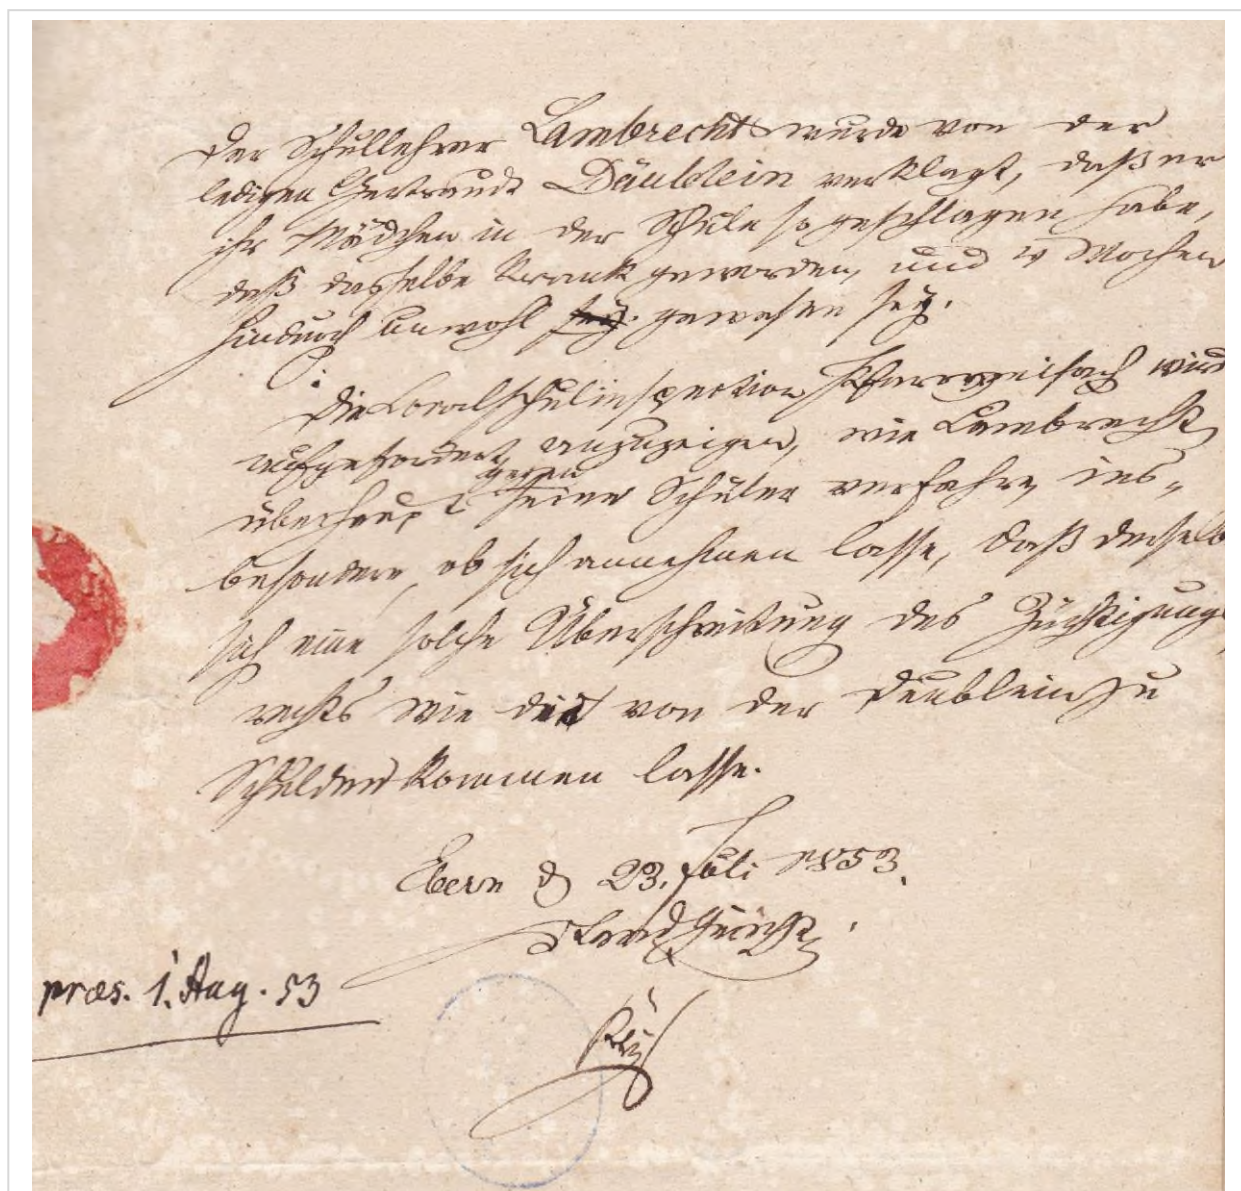 Der Schullehrer Lambrecht wurde von der
ledigen Gertraudt Däublein verklagt, daß er
ihr Mädchen in der Schule so geschlagen habe,
daß dasselbe krank geworden, und Wochen
hindurch unwohl sey. gewesen sey.
Die Localschulinspection Pfarrweisach wird
aufgefordert anzuzeigen, wie Lambrecht
gegen
überhaupt seine Schüler verfahre, ins-
besondere, ob sich annehmen lasse, daß derselb
sich eine solche Überschreitung des Züchtigungs
rechts wie die von der Däublein zu
Schulden kommen lasse.
Ebern d 23. Juli 1853.
Landgericht
præs. 1. Aug. 53